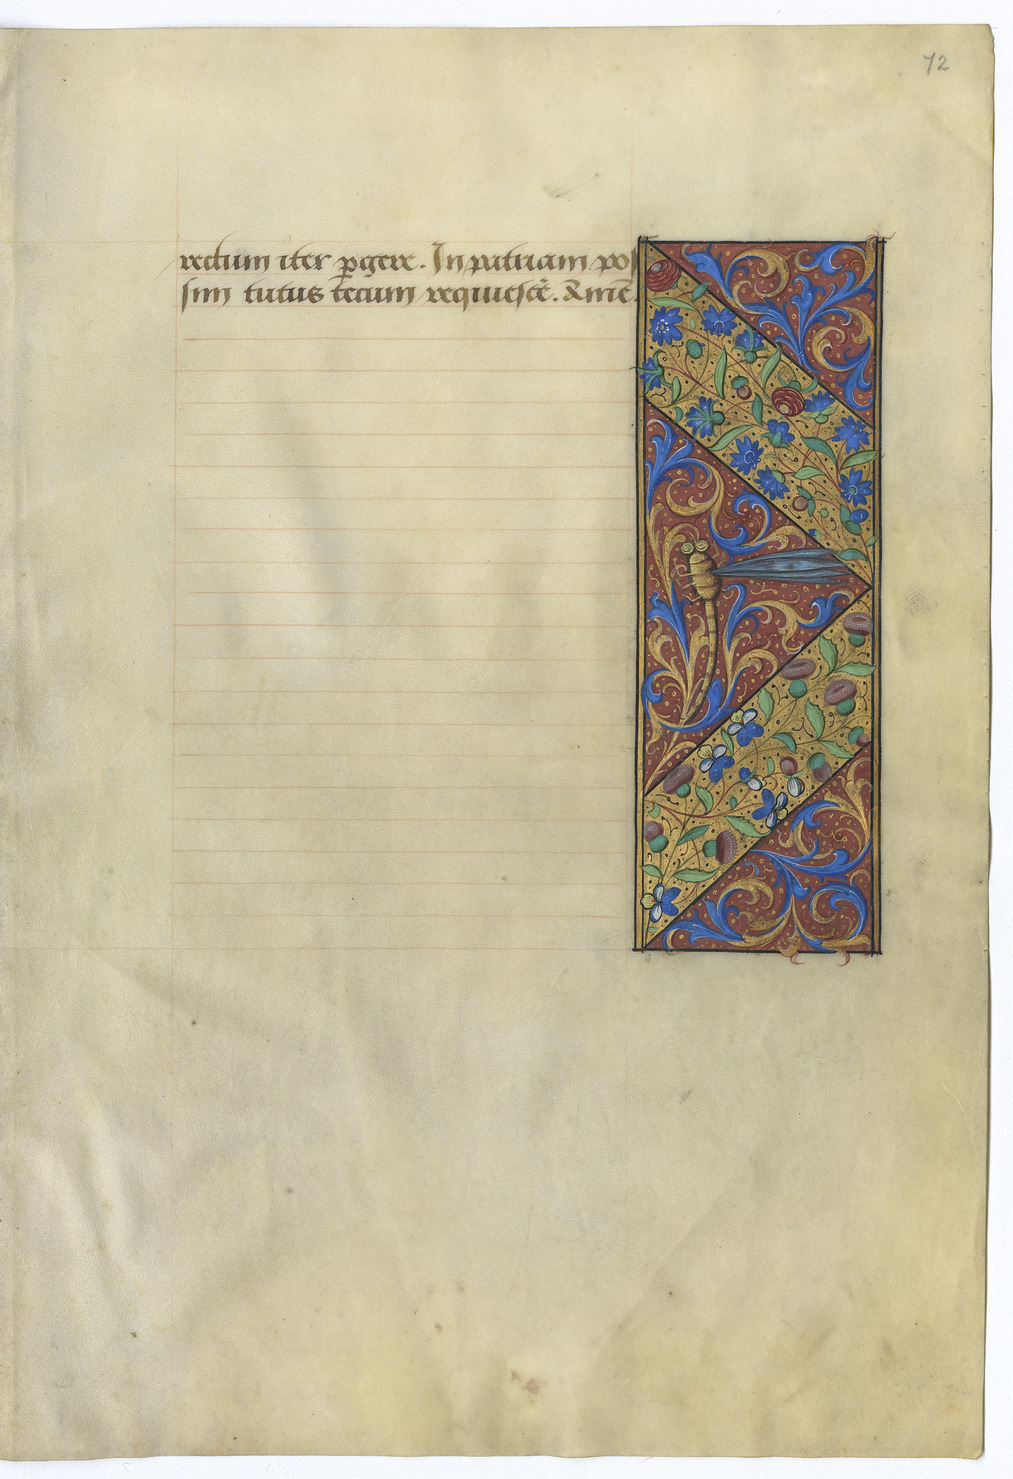 72
rectum iter ꝑgere. In patriam pos
sim tutus tecum requiescē. Amē.